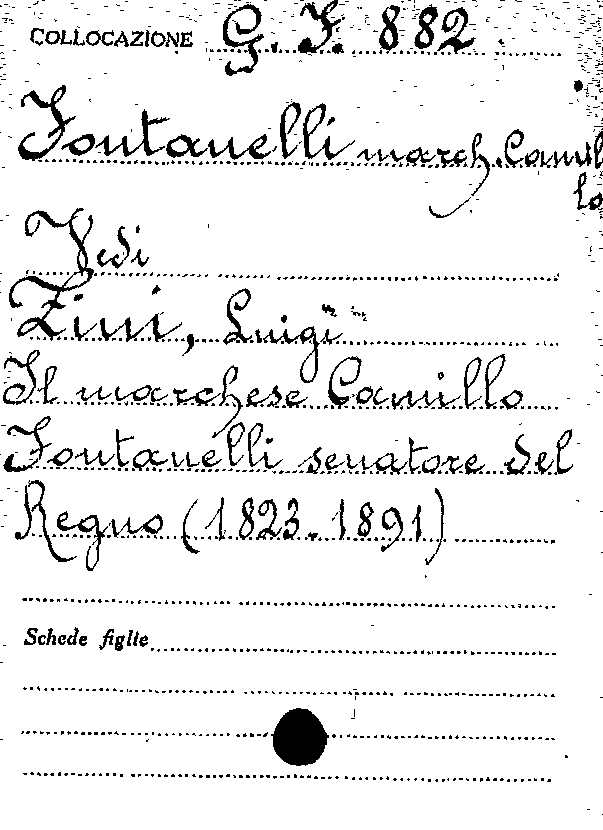 COLLOCAZIONE G. F. 882
Fontanelli march. Camil
lo
Vedi
Zini, Luigi
Il marchese Camillo
Fontanelli senatore del
Regno (1823-1891)
Schede figlie